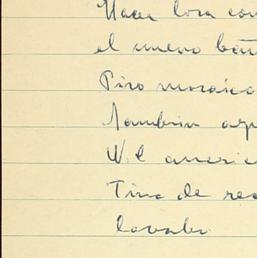 Hacer losa con
el nuevo bañ
Piso mosaico
Lambrin azu
W.C americ
Tina de rec
lavabo